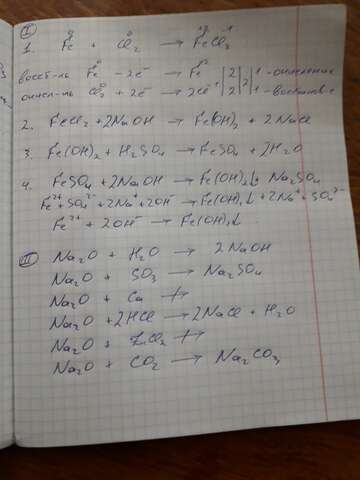 I
1. Fe⁰ + Cl₂⁰ → Fe⁺²Cl₂⁻¹
восст-ль Fe⁰ - 2e⁻ → Fe⁺² | 2 | 2 | 1 - окисление
окисл-ль Cl₂⁰ + 2e⁻ → 2Cl⁻¹ | 2 | 1 - восстан-е
2. FeCl₂ + 2NaOH → Fe(OH)₂ + 2NaCl
3. Fe(OH)₂ + H₂SO₄ → FeSO₄ + 2H₂O
4. FeSO₄ + 2NaOH → Fe(OH)₂↓ + Na₂SO₄
Fe²⁺ + SO₄²⁻ + 2Na⁺ + 2OH⁻ → Fe(OH)₂↓ + 2Na⁺ + SO₄²⁻
Fe²⁺ + 2OH⁻ → Fe(OH)₂↓
II
Na₂O + H₂O → 2NaOH
Na₂O + SO₃ → Na₂SO₄
Na₂O + Ca ↛
Na₂O + 2HCl → 2NaCl + H₂O
Na₂O + ZnCl₂ ↛
Na₂O + CO₂ → Na₂CO₃